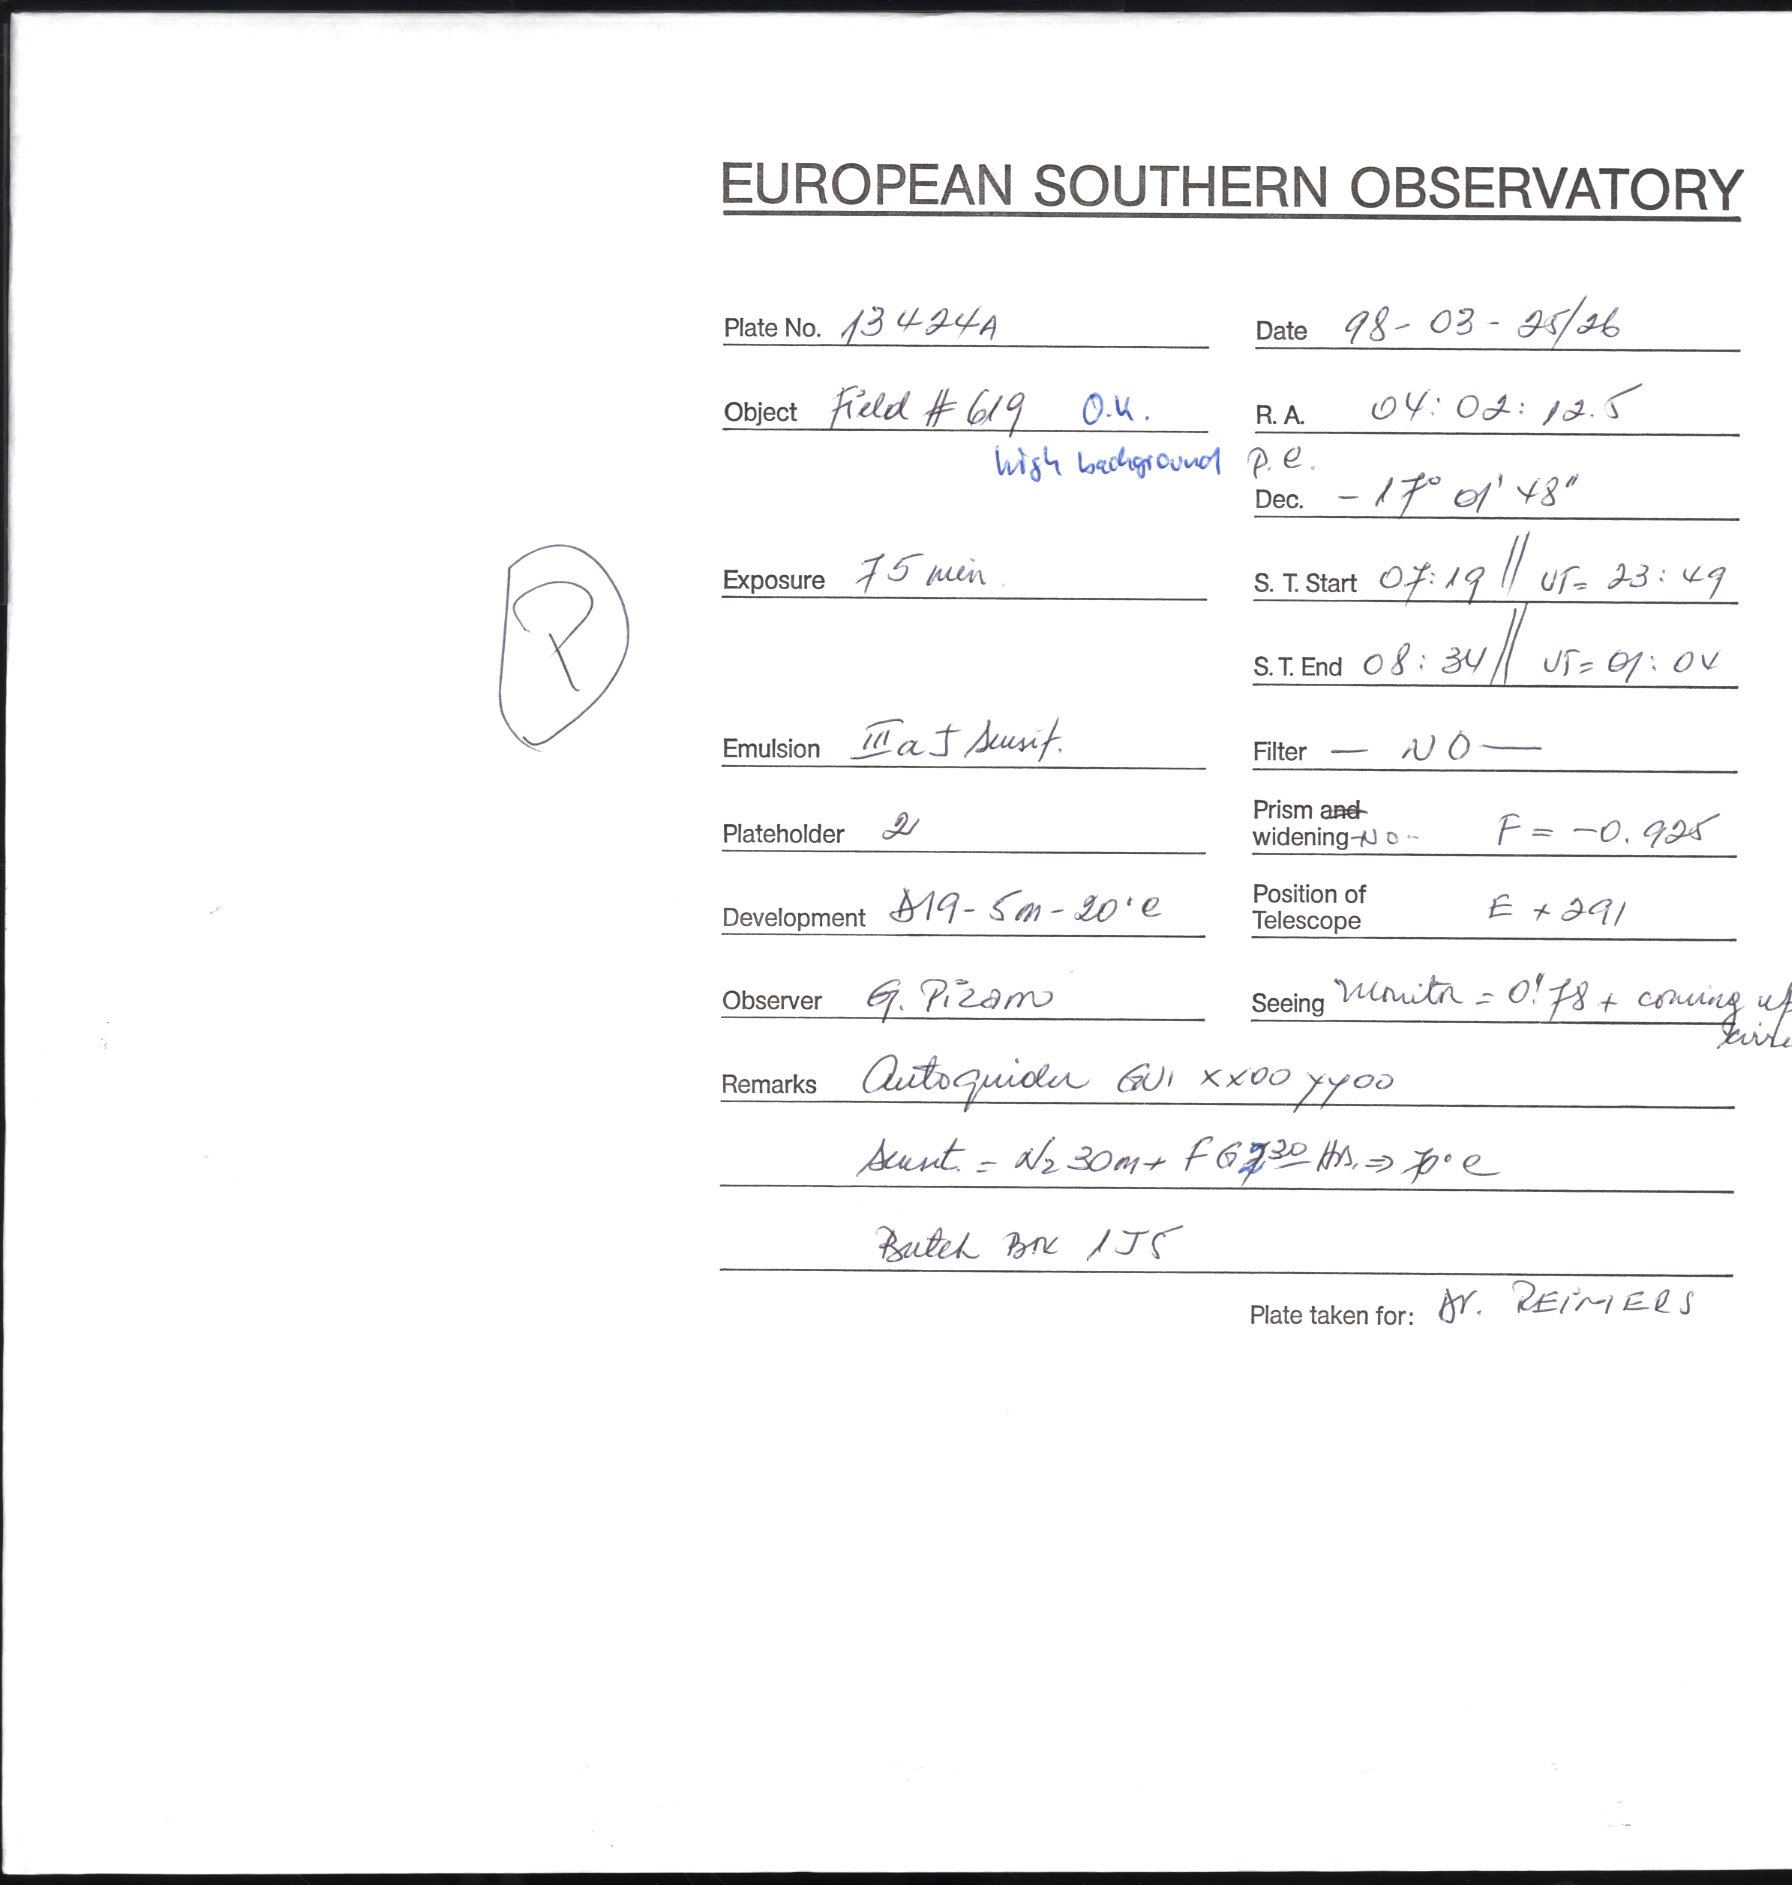 EUROPEAN SOUTHERN OBSERVATORY
Plate No. 13424A Date 98-03-25/26
Object Field # 619 O.K. R. A. 04:02:12.5
high background P.C.
Dec. -17° 01' 48"
Exposure 75 min. S. T. Start 07:19 // UT= 23:49
S. T. End 08:34 // UT= 01:04
Emulsion IIIaJ Sensit. Filter — NO —
Plateholder 2 Prism and widening -NO- F = -0.925
Development D19-5m-20°C Position of Telescope E +291
Observer G. Pizarro Seeing Monitor = 0".78 + coming up
Remarks Autoguider GV1 XX00 YY00
Sensit. = N2 30m + FG 30 Hs. => 70°C
Batch Box 1J5
Plate taken for: Dr. REIMERS
P